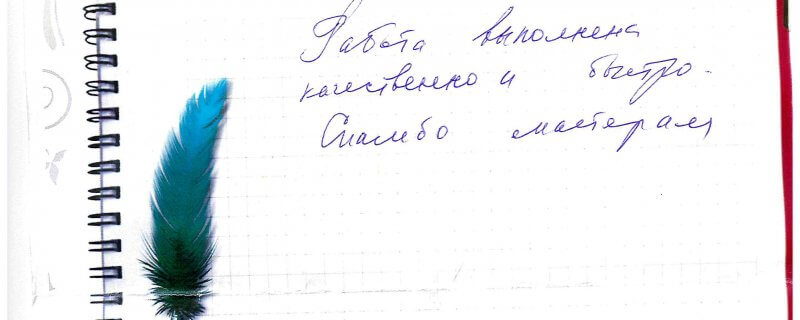 Работа выполнена
качественно и быстро.
Спасибо мастерам